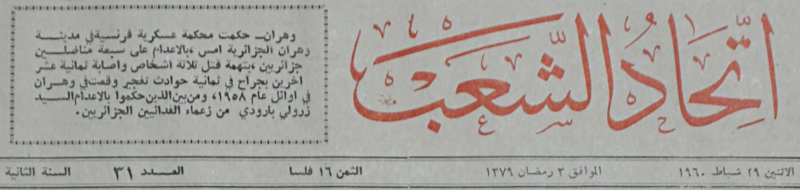 اتحاد الشعب
وهران_ حكمت محكمة عسكرية فرنسية في مدينة
وهران الجزائرية امس ،بالاعدام على سبعة مناضلين
جزائريين ،بتهمة قتل ثلاثة اشخاص واصابة ثمانية عشر
آخرين بجراح في ثمانية حوادث تفجير وقعت في وهران
في اوائل عام ١٩٥٨، ومن بين الذين حكموا بالاعدام السيد
زرولي بارودي من زعماء الفدائيين الجزائريين.
الاثنين ٢٩ شباط ١٩٦٠ الموافق ٣ رمضان ١٣٧٩ الثمن ١٦ فلسا العدد ٣١ السنة الثانية